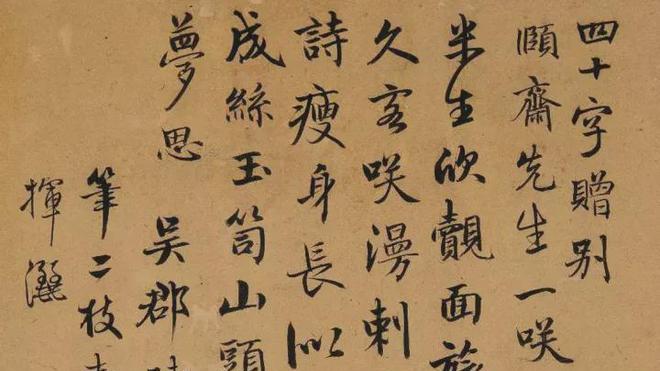 四十字贈别
頤齋先生一咲
米生欣覿面
久客咲漫刺
詩瘦身長似
成絲玉笥山頭
夢思 吳郡
筆二枝
揮灑